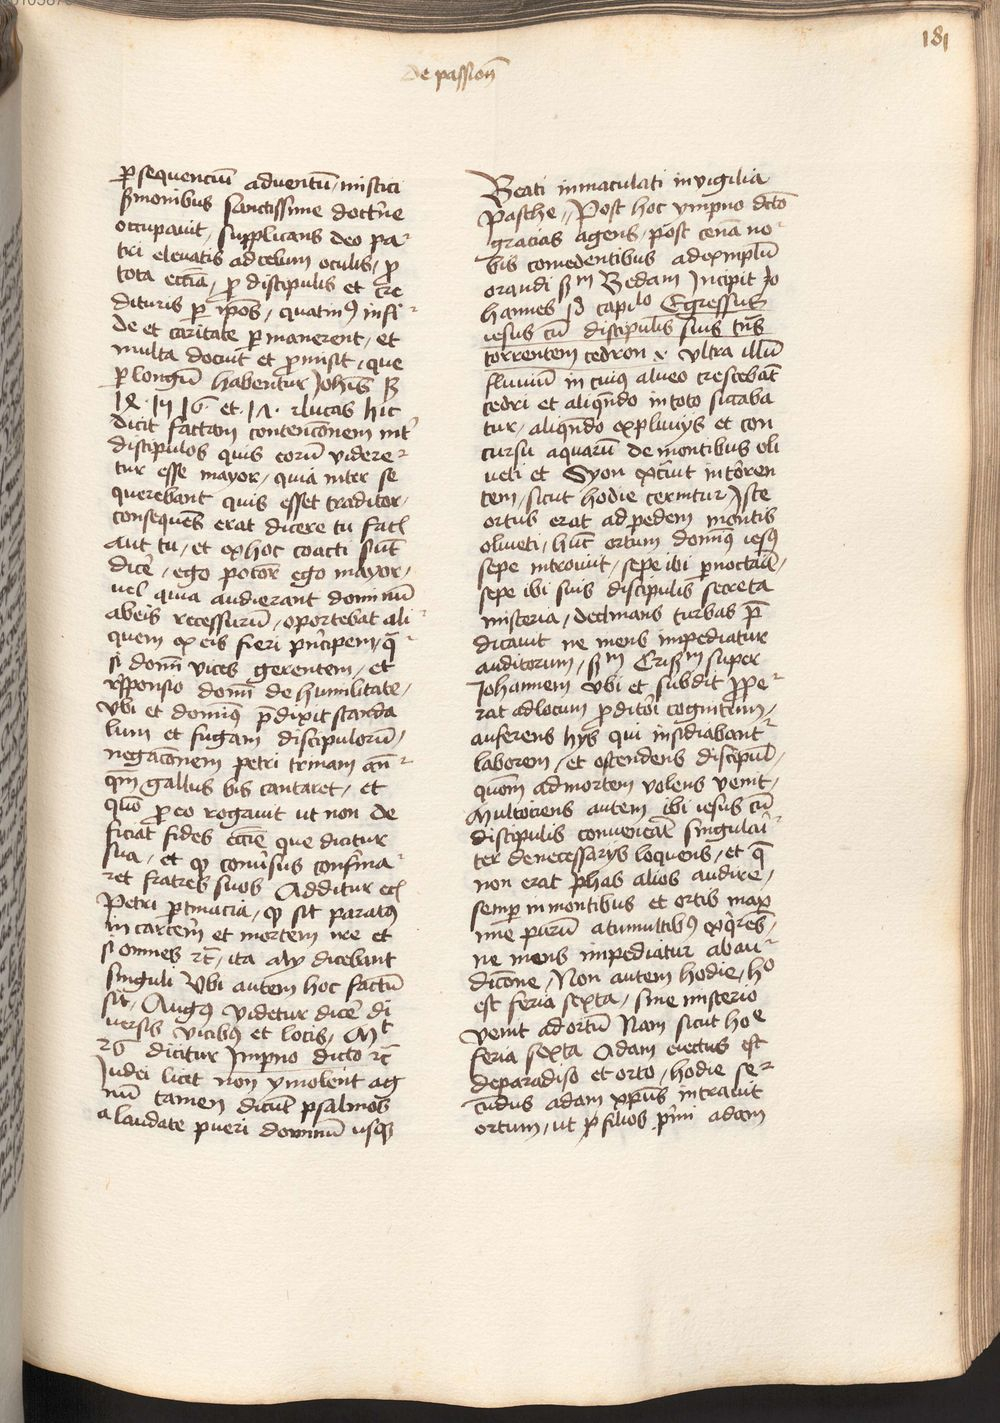 181
De passioñ
ꝑsequenciū adventū / mistici
ẜmonibus sanctissime doctͥne
occupavit / supplicans deo pa-
tri elevatis ad celum oculis / ꝓ
tota eccīa / ꝓ discipulis et cre
dituris ꝑ ip̄os / quatinꝰ in fi-
de et caritate ꝑmanerent / et
multa docuit et ꝓmisit / que
ꝑ longū habentur Joh̄is
et · 17 · et lucas hic
dicit factam contencōnem int̄
discipulos quis eorū videre-
tur esse mayor / quia inter se
querebant quis esset traditor /
consequēs erat dicere tu facis
aut tu / et ex hoc coacti sūt
dicē / ego potior ego mayor /
vel quia audierant dominū
ab eis recessurū / oportebat ali-
quem ex eis fieri pͥncipem / q̄-
si domī vices gerentem / et
rn̄sponsio domī de humilitate /
Vbi et domīꝰ p̄dixit scanda
lum et fugam discipulorū /
negacōnem petri trinam an̄-
qm̄ gallus bis cantaret / et
quō ꝓ eo rogavit ut non de
ficiat fides eccīe que dicitur
sua / et ꝙ conūsus confirma-
ret fratres suos Additur
Petri ꝑtinacia / ꝙ sit paratꝰ
in carcerē et mortem ire et
si omnes ⁊c̄ / ita dicebant
singuli Vbi autem hoc factū
sit / Augꝰ videtur dicē di
versis vicibꝰ et locis / Mt
26 dicitur Jmpno dicto ⁊c̄
Judei licet non ymolent ag
nū tamen dicūt psalmos
a laudate pueri dominū usqꝫ
Beati inmaculati in vigilia
Pasche // Post hoc ympno dc̄to
gracias agens / post cenā no-
bis comedentibus ad exmplū
orandi ẜm Bedam Jncipit Jo
hannes capi̅lo Egressus
iesus cū discipul̄s suis t̄ns
torrentem cedron Vltra illū
fluviū in cuiꝰ alveo crescebāt
cedri et aliqn̄do in toto sicaba
tur / aliqn̄do ex pluviys et con
cursu aquarū de montibus oli
veti et Syon in torren
tem / sicut hodie cernitur Jste
ortus erat ad pedem montis
oliveti / hūc ortum dominꝰ iesꝰ
sepe introivit / sepe ibi ꝑnoctavit /
sepe ibi suis discipulis secreta
misteria / declinans turbas p̄
dicavit ne mens impediatur
auditorum / ẜm Crisᵐ super
Johannem Vbi et subdit ꝓpe-
rat ad locum ꝓditori cognitum /
auferens hys qui insidiabant-
laborem / et ostendens discipul̄
quom̄ ad mortem volens venit /
Multociens autem ibi iesus cū
discipulis convenerāt singulari-
ter de necessarys loquens / et q̄
non erat p̄has alios audire /
semꝑ in montibus et ortis max
ime purū a tumultibꝰ exq̄rēs /
ne mens impediatur ab au-
dicōne / Non autem hodie / hͦ
est feria sexta / sine misterio
venit ad ortū Nam sicut hoᵉ
feria sexta Adam eiectus est
de paradiso et orto / hodie se-
cūdus adam xp̄us intravit
ortum / ut ꝑ filios pͥmi adam